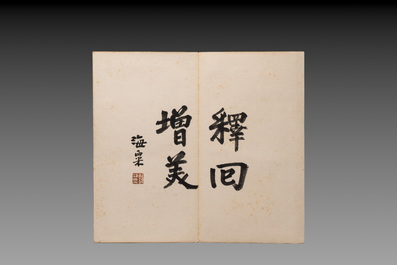 釋回
增美
海粟